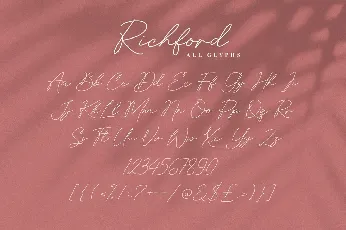 Richford
ALL GLYPHS
Aa Bb Cc Dd Ee Ff Gg Hh Ii
Jj Kk Ll Mm Nn Oo Pp Qq Rr
Ss Tt Uu Vv Ww Xx Yy Zz
1234567890